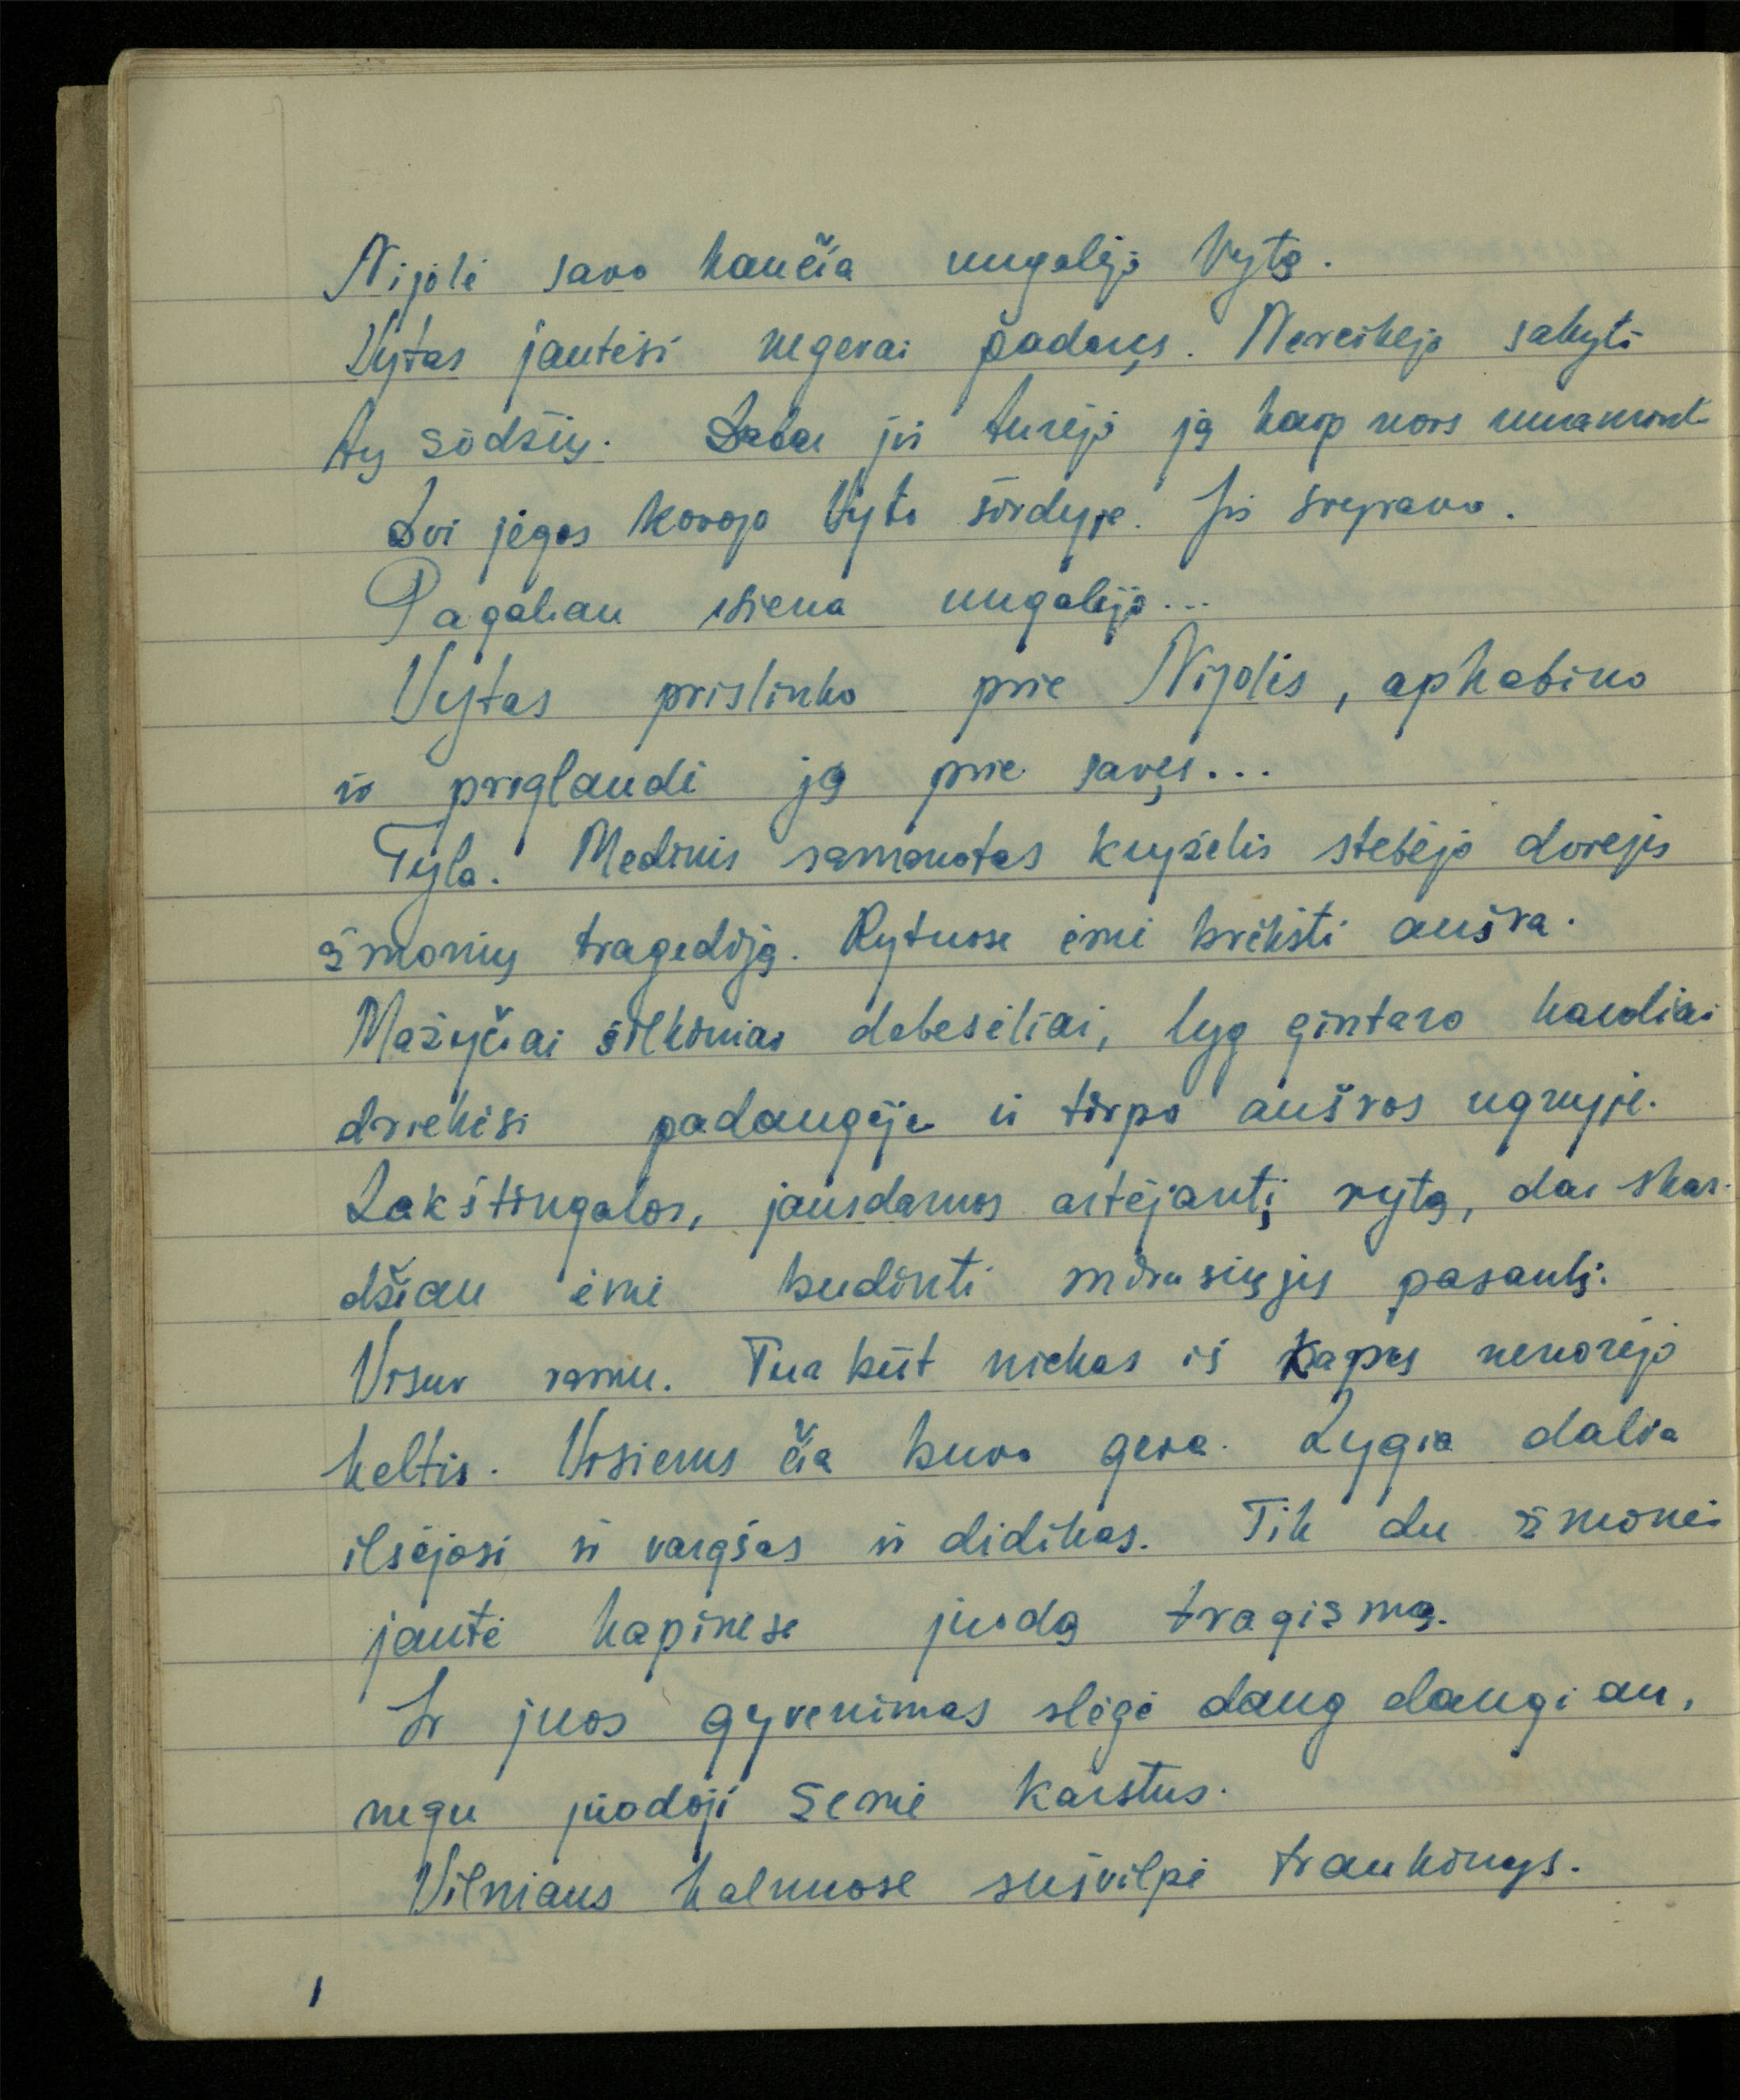 Nijolė savo kančia nugalėjo Vytą.
Vytas jautėsi negerai padaręs. Nereikėjo sakyti
tų žodžių. Dabar jis turėjo ją kaip nors nuramint
Dvi jėgos kovojo Vyto širdyje. Jis svyravo.
Pagaliau viena nugalėjo...
Vytas prislinko prie Nijolės, apkabino
ir priglaudė ją prie savęs...
Tyla. Medinis samanotas kryželis stebėjo dvejis
žmonių tragediją. Rytuose ėmė brėkšti aušra.
Mažyčiai šilkiniai debesėliai, lyg gintaro kavoliai
driekėsi padangėje ir tirpo aušros ugnyje.
Lakštingalos, jausdamos artėjantį rytą, dar skar-
džiau ėmė budinti mirusiųjų pasaulį.
Visur ramu. Tur būt niekas iš kapų nenorėjo
keltis. Visiems čia buvo gera. Lygia dalia
ilsėjosi ir vargšas ir didikas. Tik du žmonės
jautė kapinėse juodą tragizmą.
Ir juos gyvenimas slėgė daug daugiau,
negu juodoji žemė karstus.
Vilniaus kalnuose sušvilpė traukinys.